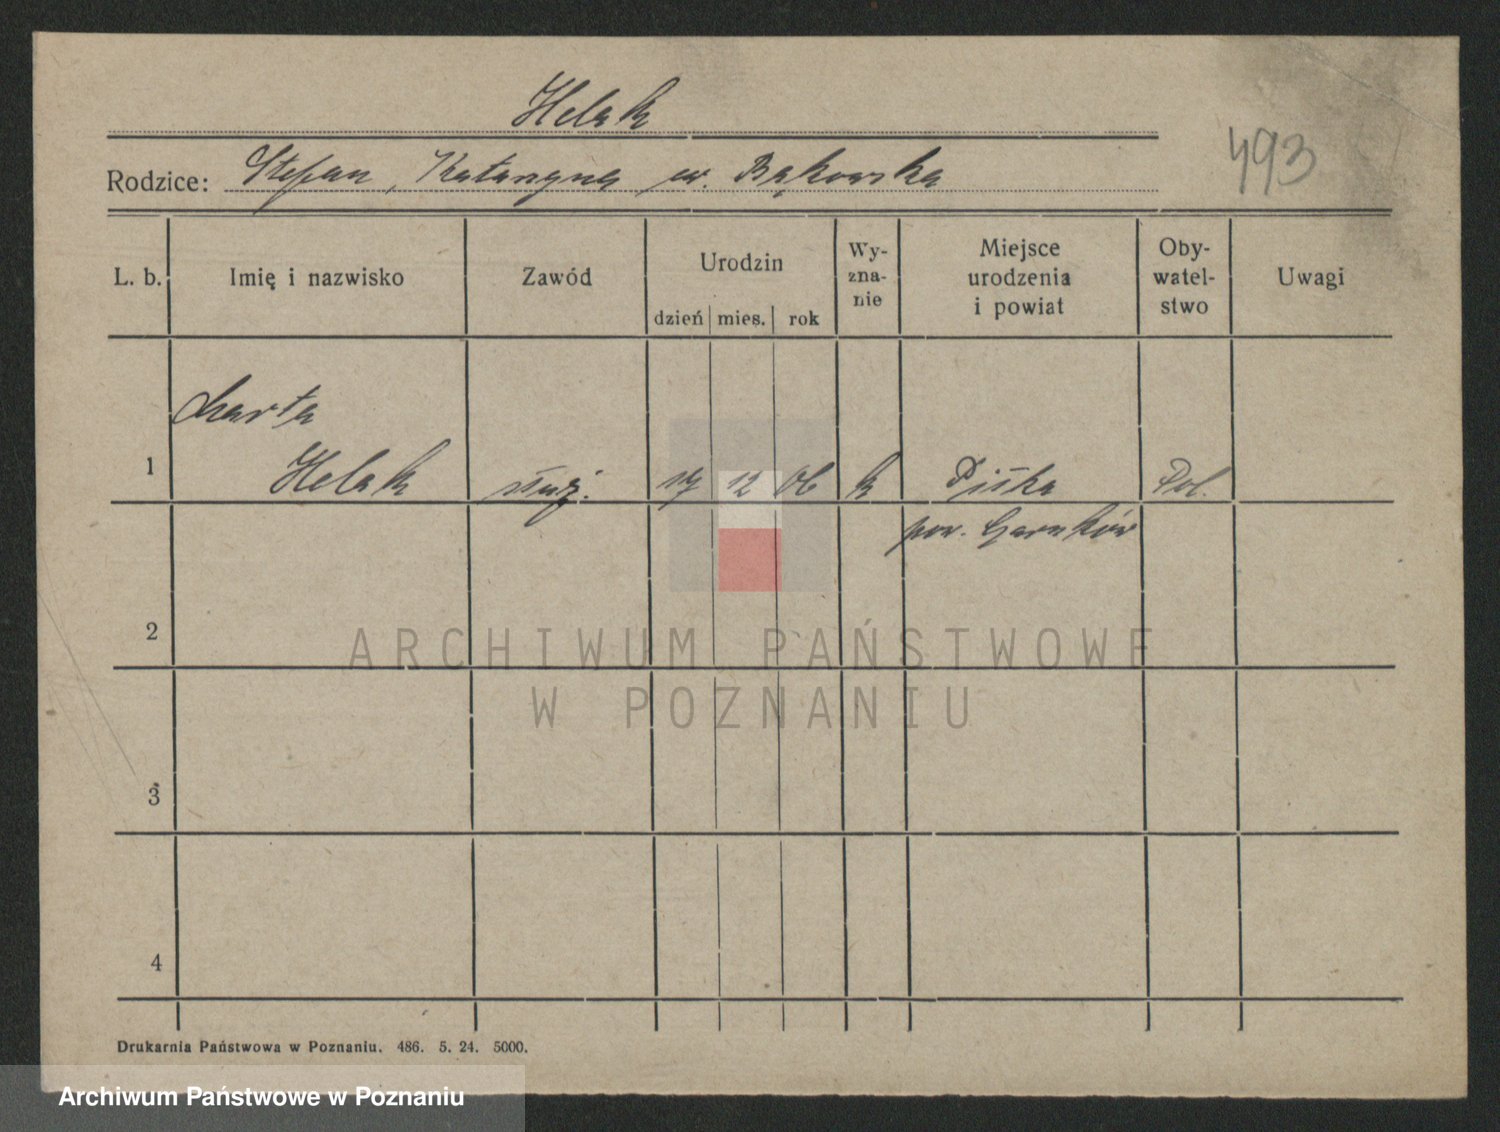 Helak
493
Rodzice: Stefan, Katarzyna ur. Bąkowska
L. b.
Imię i nazwisko
Zawód
Urodzin
dzień mies. rok
Wy-
zna-
nie
Miejsce
urodzenia
i powiat
Oby-
watel-
stwo
Uwagi
Marta
1 Helak służ. 12 06 k Piłka Pol.
pow. Czarnków
2
ARCHIWUM PAŃSTWOWE
W POZNANIU
3
4
Drukarnia Państwowa w Poznaniu. 486. 5. 24. 5000.
Archiwum Państwowe w Poznaniu